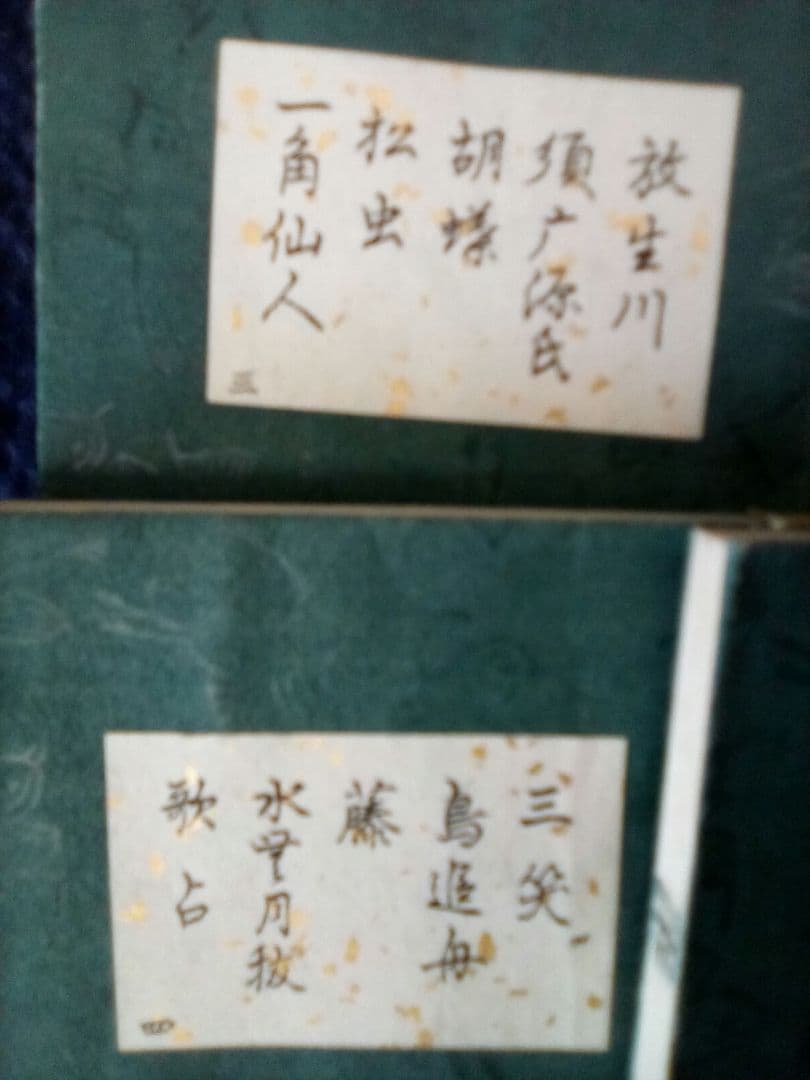 放生川
須广源氏
胡蝶
松虫
一角仙人
三
三笑
鳥追舟
藤
水無月祓
歌占
四